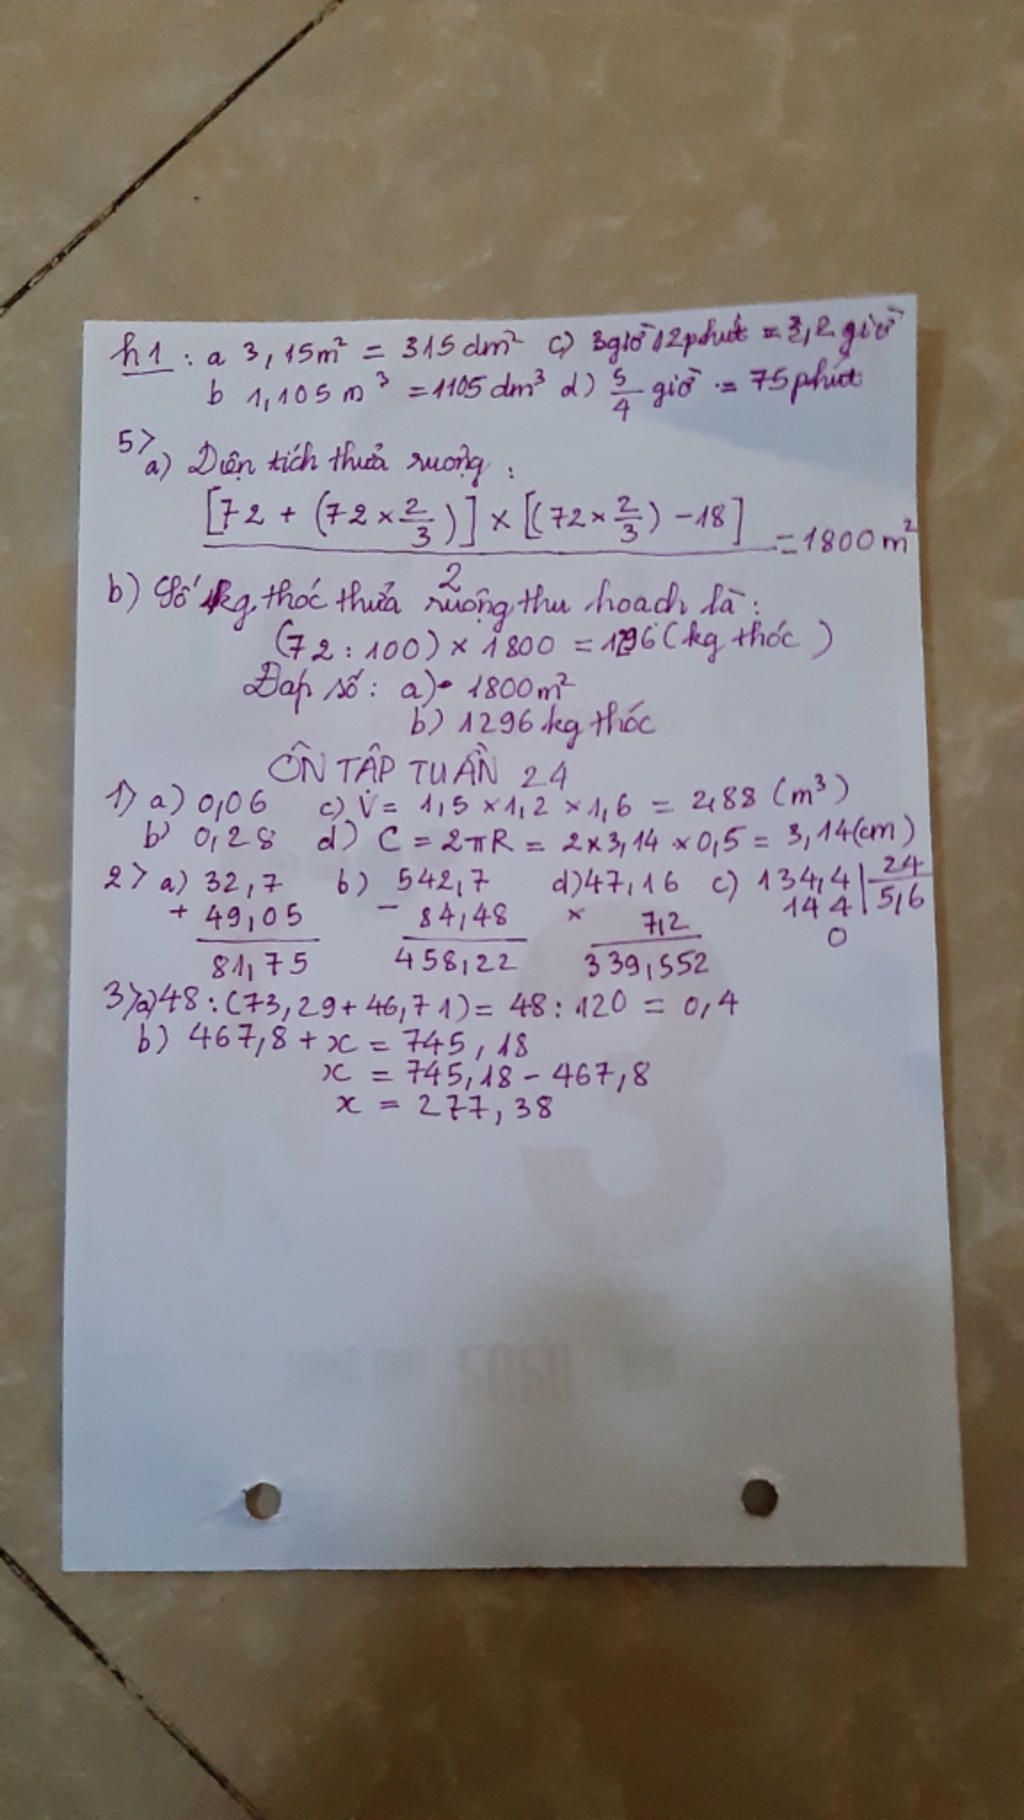 h1 : a 3,15m² = 315 dm² c) 3giờ 12phút = 3,2 giờ
b 1,105 m³ = 1105 dm³ d) 5/4 giờ = 75 phút
5> a) Diện tích thửa ruộng :
[72 + (72 × 2/3)] × [(72 × 2/3) - 18] / 2 = 1800 m²
b) Số kg thóc thửa ruộng thu hoach là :
(72 : 100) × 1800 = 1296 (kg thóc)
Đap số : a) 1800 m²
b) 1296 kg thóc
ÔN TẬP TUẦN 24
1) a) 0,06 c) V = 1,5 × 1,2 × 1,6 = 2,88 (m³)
b) 0,28 d) C = 2πR = 2 × 3,14 × 0,5 = 3,14 (cm)
2> a) 32,7 b) 542,7 d) 47,16 c) 134,4 | 24
+ 49,05 - 84,48 × 7,2 14 4 | 5,6
81,75 458,22 339,552 0
3> a) 48 : (73,29 + 46,71) = 48 : 120 = 0,4
b) 467,8 + x = 745,18
x = 745,18 - 467,8
x = 277,38